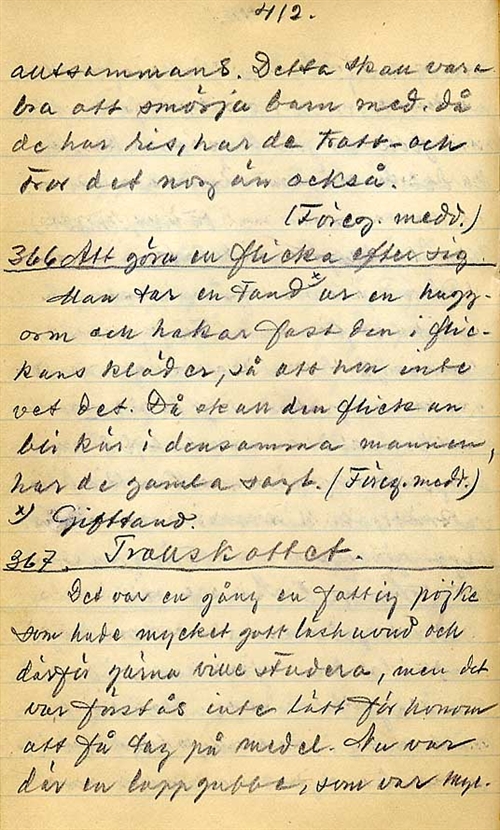 412.
alltsammans. Detta skall vara
bra att smörja barn med. då
de har ris, har de trott- och
tror det nog än också.
(Föreg. medd.)
366 Att göra en flicka efter sig.
Man tar en Tand x) ur en hugg-
orm och hakar fast den i flic-
kans kläder, så att hon inte
vet det. Då skall den flickan
bli kär i densamma mannen,
har de gamla sagt. (Föreg. medd.)
x) Gifttand.
367. Trollskottet.
Det var en gång en fattig pojke
som hade mycket gott läshuvud och
därför gärna ville studera, men det
var förstås inte lätt för honom
att få tag på medel. Nu var
där en lappgubbe, som var myc-